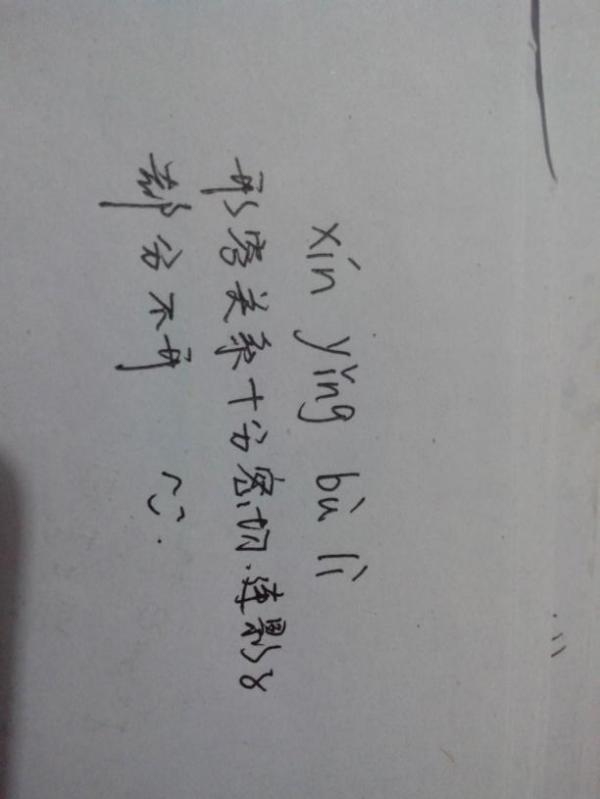 xín yǐng bù lì
形容关系十分密切.连影子
都分不开